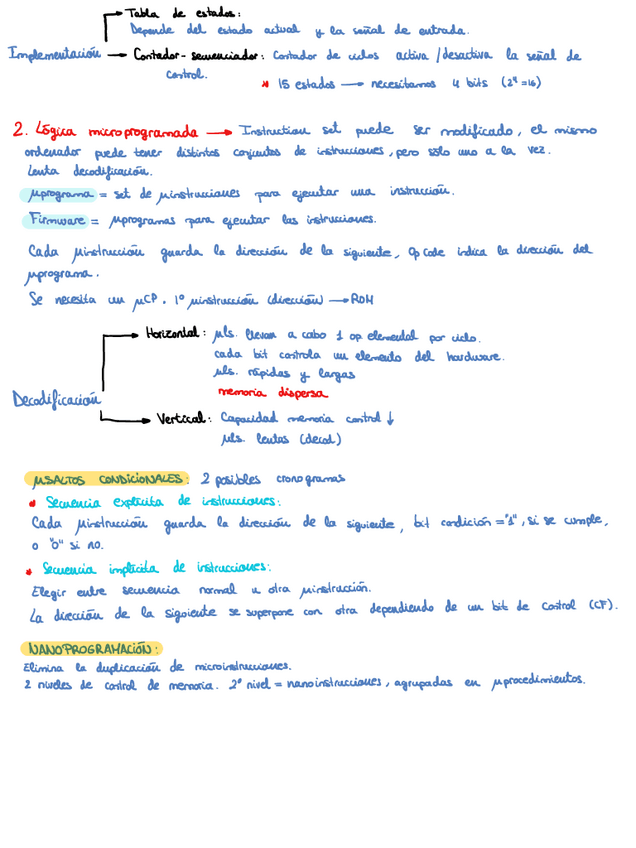 Tabla de estados:
Depende del estado actual y la señal de entrada.
Implementación → Contador-secuenciador: Contador de ciclos activa/desactiva la señal de
control.
* 15 estados → necesitamos 4 bits (2⁴=16)
2. Lógica microprogramada → Instruction set puede ser modificado, el mismo
ordenador puede tener distintos conjuntos de instrucciones, pero sólo uno a la vez.
Lenta decodificación.
μprograma = set de μinstrucciones para ejecutar una instrucción.
Firmware = μprogramas para ejecutar las instrucciones.
Cada μinstrucción guarda la dirección de la siguiente, Op Code indica la dirección del
μprograma.
Se necesita un μCP. 1º μinstrucción (dirección) → ROM
Horizontal: μIs. llevan a cabo 1 op elemental por ciclo.
cada bit controla un elemento del hardware.
μIs. rápidas y largas
memoria dispersa
Decodificación
Vertical: Capacidad memoria control ↓
μIs. lentas (decod)
μSALTOS CONDICIONALES: 2 posibles cronogramas
* Secuencia explícita de instrucciones:
Cada μinstrucción guarda la dirección de la siguiente, bit condición = "1", si se cumple,
o "0" si no.
* Secuencia implícita de instrucciones:
Elegir entre secuencia normal u otra μinstrucción.
La dirección de la siguiente se superpone con otra dependiendo de un bit de control (CF).
NANOPROGRAMACIÓN:
Elimina la duplicación de microinstrucciones.
2 niveles de control de memoria. 2º nivel = nanoinstrucciones, agrupadas en μprocedimientos.